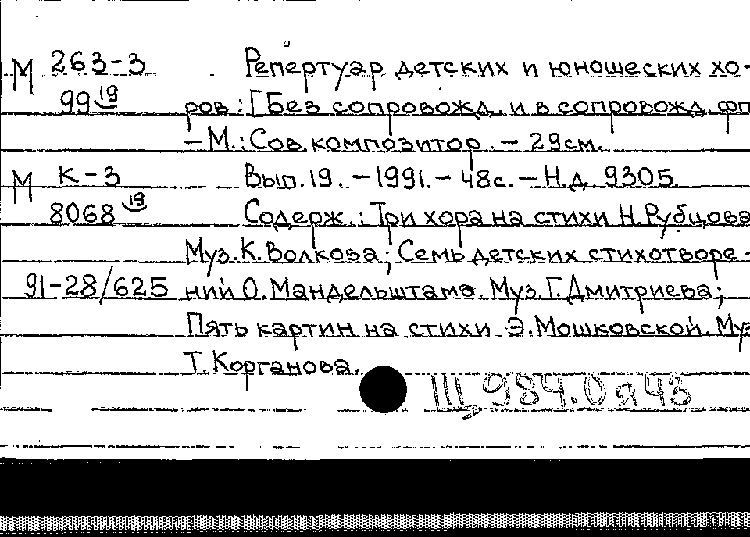 М 263-3 Репертуар детских и юношеских хо-
99 19 ров: [Без сопровожд. и в сопровожд. фп
– М.: Сов. композитор. – 29см.
М К-3 Вып. 19. – 1991. – 48с. – Н.д. 9305.
8068 19 Содерж.: Три хора на стихи Н. Рубцова
Муз. К. Волкова; Семь детских стихотворе-
91-28/625 ний О. Мандельштама. Муз. Г. Дмитриева;
Пять картин на стихи Э. Мошковской. Муз
Т. Корганова.
Щ 984.0я43